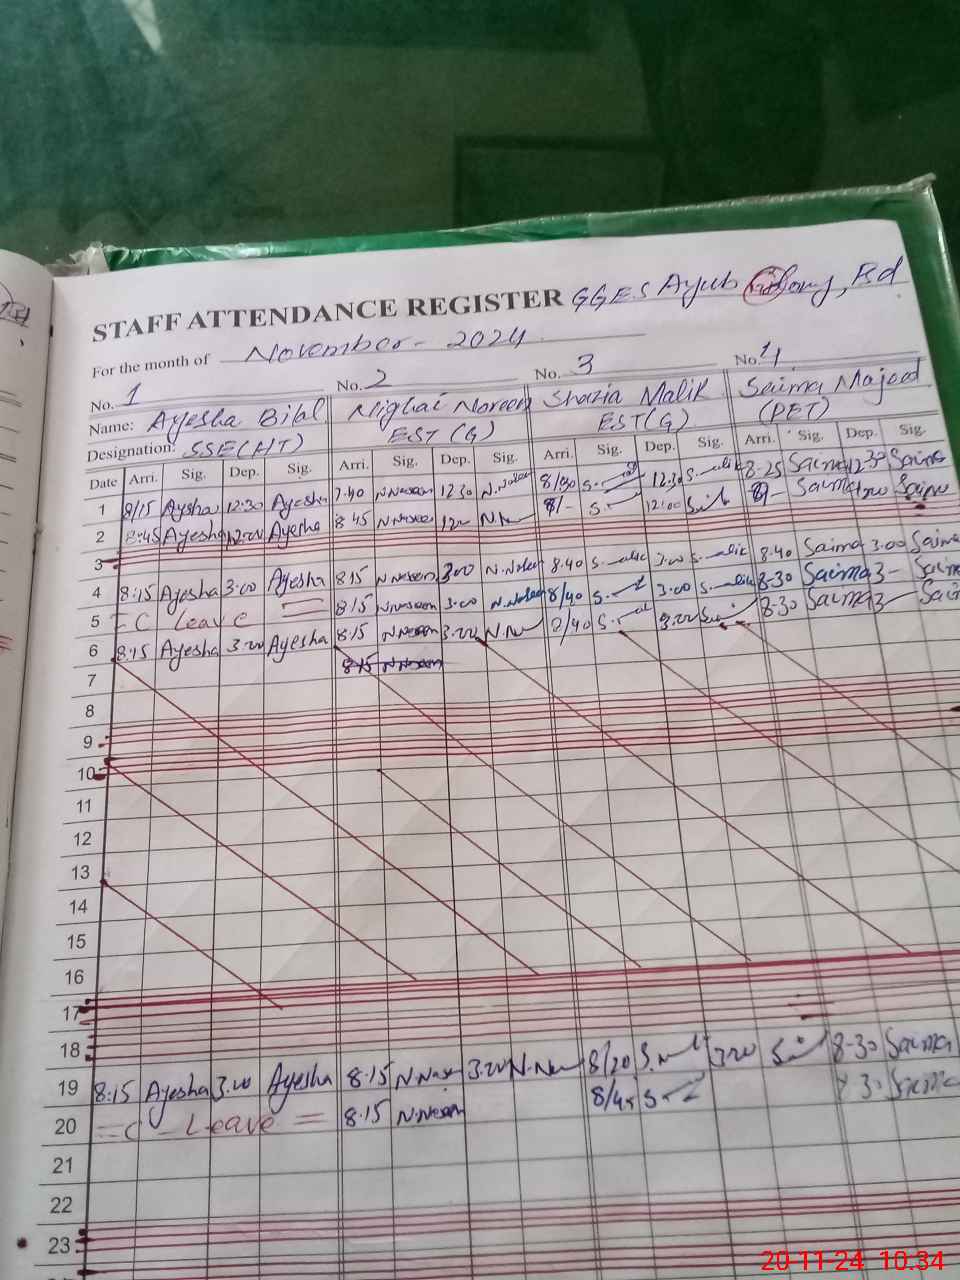 STAFF ATTENDANCE REGISTER GGES Ayub Colony, Rd
For the month of November - 2024
No. 1 No. 2 No. 3 No. 4
Name: Ayesha Bilal Nighat Noreen Shazia Malik Saima Majeed
Designation: SSE(HT) EST (G) EST(G) (PET)
Date Arri. Sig. Dep. Sig. Arri. Sig. Dep. Sig. Arri. Sig. Dep. Sig. Arri. Sig. Dep. Sig.
1 8/15 Aysha 12:30 Ayesha 7.40 N.Noreen 12 30 N.Noreen 8/30 12:30 S.malik 8-25 Saima 12 30 Saima
2 8:45 Ayesha 12.00 Ayesha 8 45 N.Noreen 8/- 12:00 Saima Saima
3
4 8:15 Ayesha 3.00 Ayesha 8.15 N.Noreen 3.00 N.Noreen 8.40 S.malik 3.00 S.malik 8.40 Saima 3.00 Saima
5 = C Leave = 8.15 N.Noreen 3.00 N.Noreen 8/40 3.00 S.malik 8-30 Saima 3- Saima
6 8.15 Ayesha 3.00 Ayesha 8.15 N.Noreen 3.00 8/40 3.00 8-30 Saima 3- Saima
7 8.15 N.Noreen
8
9
10
11
12
13
14
15
16
17
18
19 8:15 Ayesha 3.00 Ayesha 8.15 3.00 8/20 3.00 8-30 Saima
20 = C - Leave = 8.15 N.Noreen 8/45 Saima
21
22
23
20-11-24 10:34